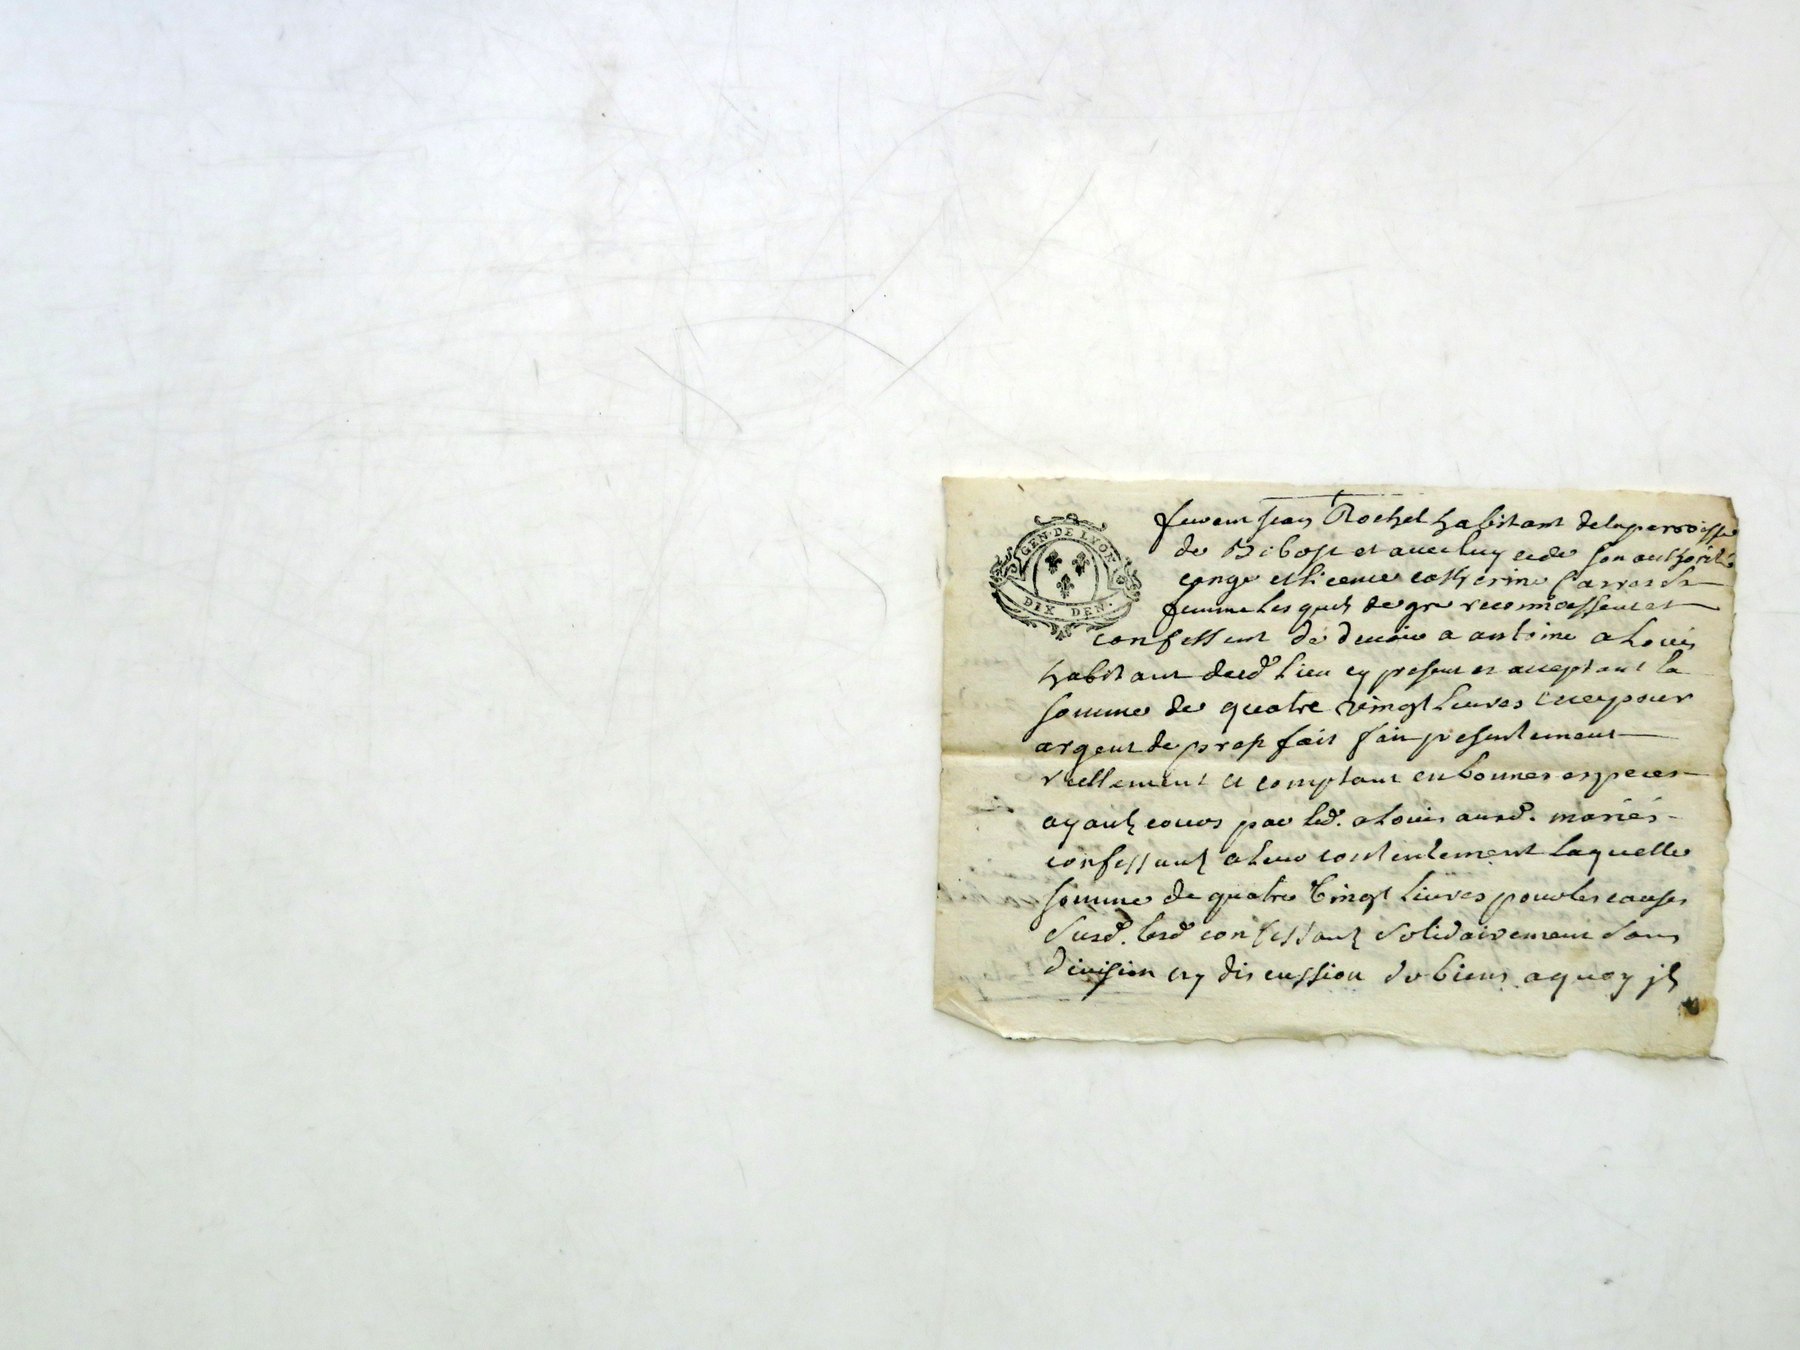 GEN. DE LYON
DIX DEN.
furent Jean Rochel habitant de la parroisse
de Bibost et avec luy et de son authorité
conge et licence catherine
femme lesquels de gre reconnoissent et
confessent de devoir a antoine alouis
habitant dud lieu cy present et acceptant la
somme de quatre vingt livres et ce pour
argent de prest fait presentement
reellement et comptant en bonnes especes
ayantz cours par led. alouis ausd. mariés
confessantz a leur contentement laquelle
somme de quatre vingt livres pour les causes
susd. lesd confessantz solidairement sans
division ny discussion de biens a quoy jls